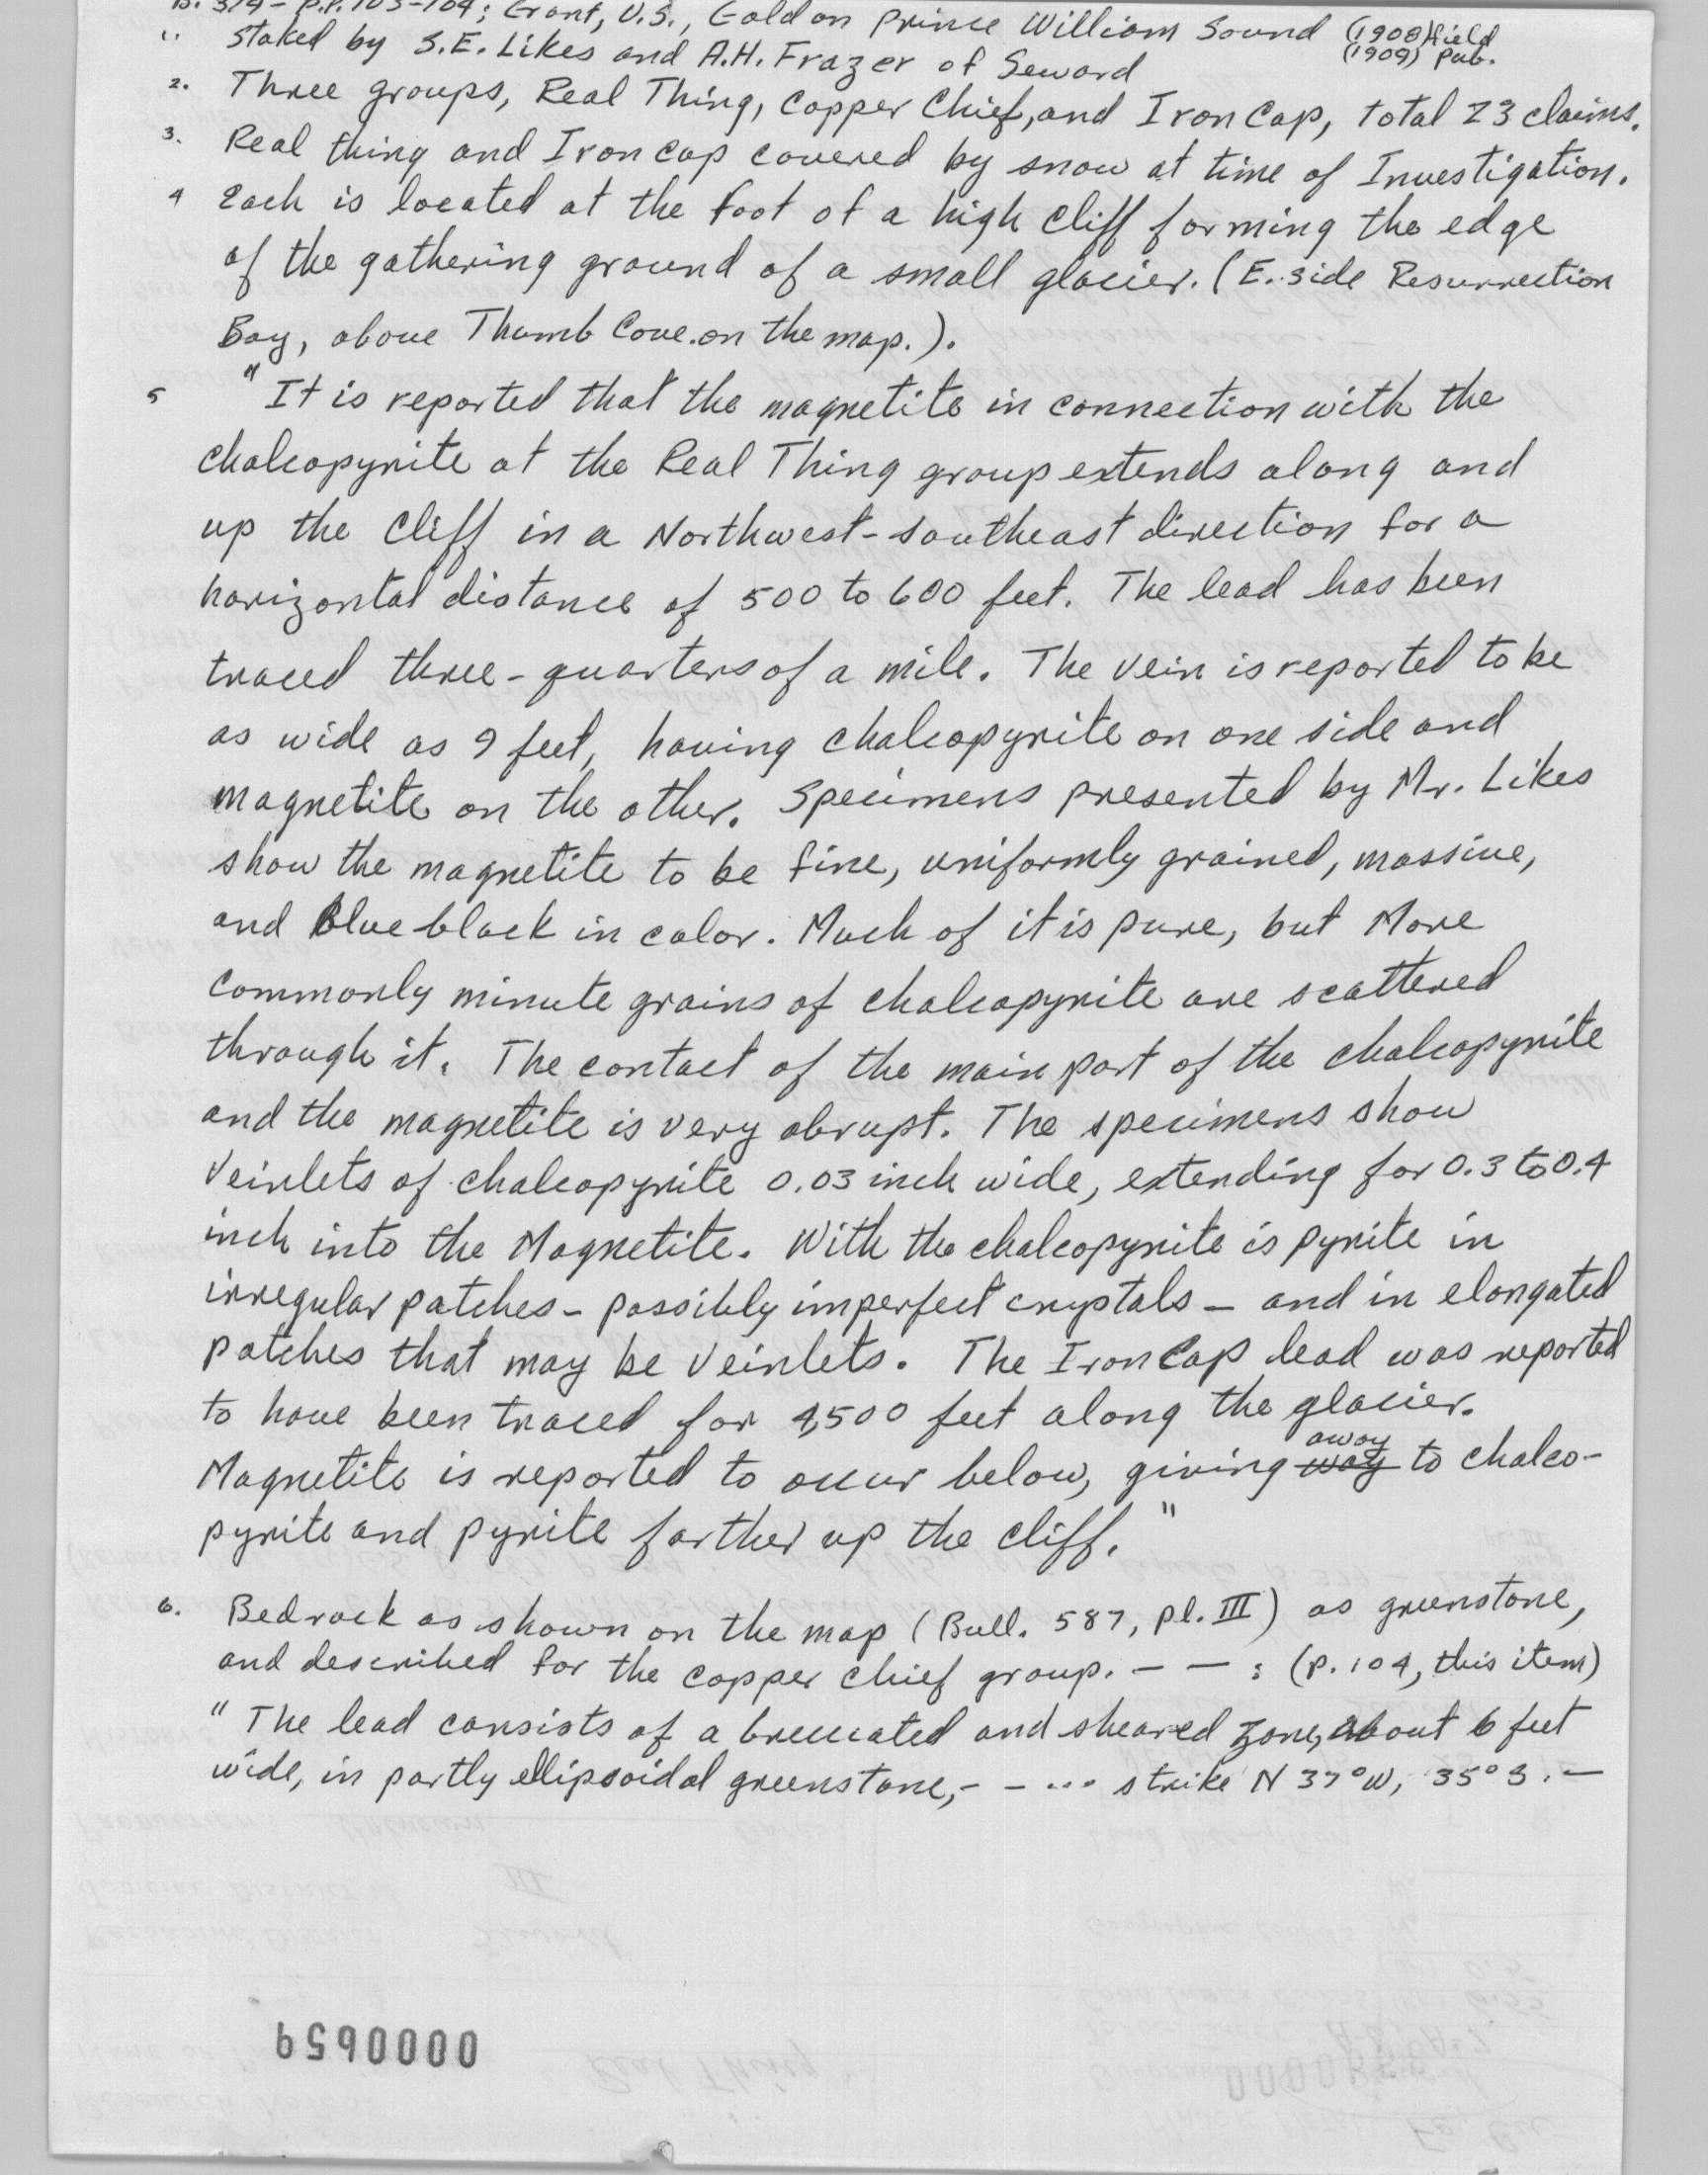 B. 379 - P.P. 103-104; Grant, U.S., Gold on Prince William Sound (1908) field
(1909) Pub.
1. Staked by S.E. Likes and A.H. Frazer of Seward
2. Three groups, Real Thing, Copper Chief, and Iron Cap, total 23 claims.
3. Real thing and Iron cap covered by snow at time of Investigation.
4 Each is located at the foot of a high cliff forming the edge
of the gathering ground of a small glacier. (E. side Resurrection
Bay, above Thumb Cove. on the map.).
5 "It is reported that the magnetite in connection with the
chalcopyrite at the Real Thing group extends along and
up the cliff in a Northwest-southeast direction for a
horizontal distance of 500 to 600 feet. The lead has been
traced three-quarters of a mile. The vein is reported to be
as wide as 9 feet, having chalcopyrite on one side and
magnetite on the other. Specimens presented by Mr. Likes
show the magnetite to be fine, uniformly grained, massive,
and blue black in color. Much of it is pure, but More
commonly minute grains of chalcopyrite are scattered
through it. The contact of the main part of the chalcopyrite
and the magnetite is very abrupt. The specimens show
veinlets of chalcopyrite 0.03 inch wide, extending for 0.3 to 0.4
inch into the Magnetite. With the chalcopyrite is pyrite in
irregular patches - possibly imperfect crystals - and in elongated
patches that may be veinlets. The Iron Cap lead was reported
to have been traced for 4,500 feet along the glacier.
away
Magnetite is reported to occur below, giving way to chalco-
pyrite and pyrite farther up the cliff."
6. Bedrock as shown on the map (Bull. 587, pl. III) as greenstone,
and described for the copper chief group. - - : (p. 104, this item)
"The lead consists of a brecciated and sheared zone, about 6 feet
wide, in partly ellipsoidal greenstone, - - ... strike N 37°W, 35°S. -
0000659
Real Thing